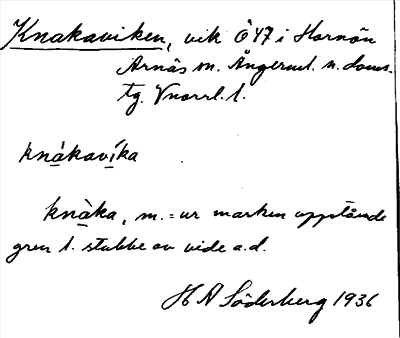 Knakaviken, vik Ö 47 i Hornön
Arnäs sn. Ångerml. n. doms-
tg. Vnorrl. l.
knákavíka
knàka, m. = ur marken uppstående
gren l. stubbe av vide a.d.
H A Söderberg 1936